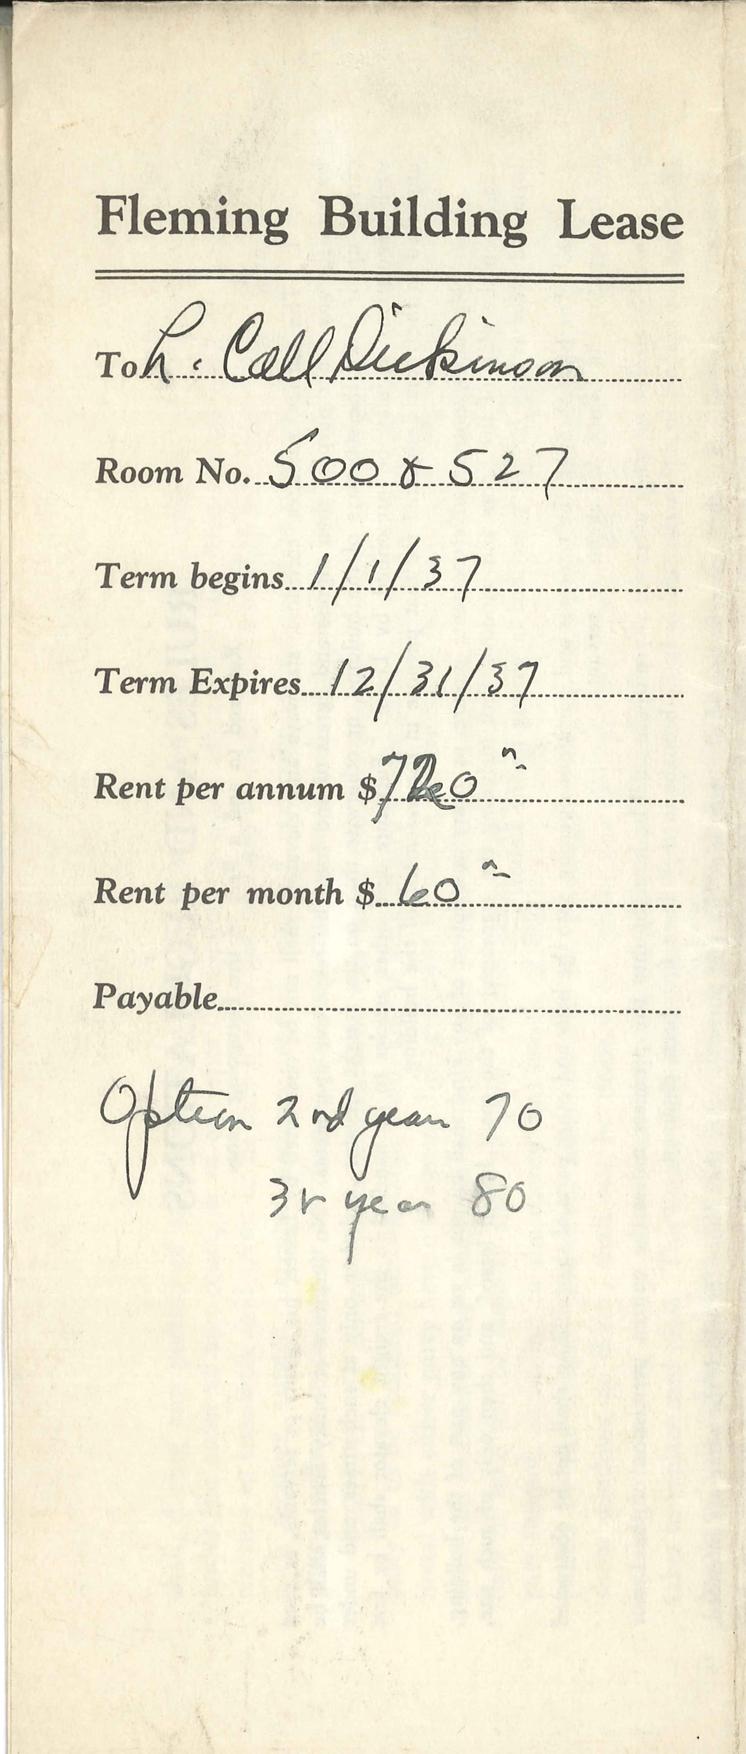 Fleming Building Lease
To L. Call Dickinson
Room No. 500 & 527
Term begins 1/1/37
Term Expires 12/31/37
Rent per annum $ 720
Rent per month $ 60
Payable
Option 2nd year 70
3r year 80